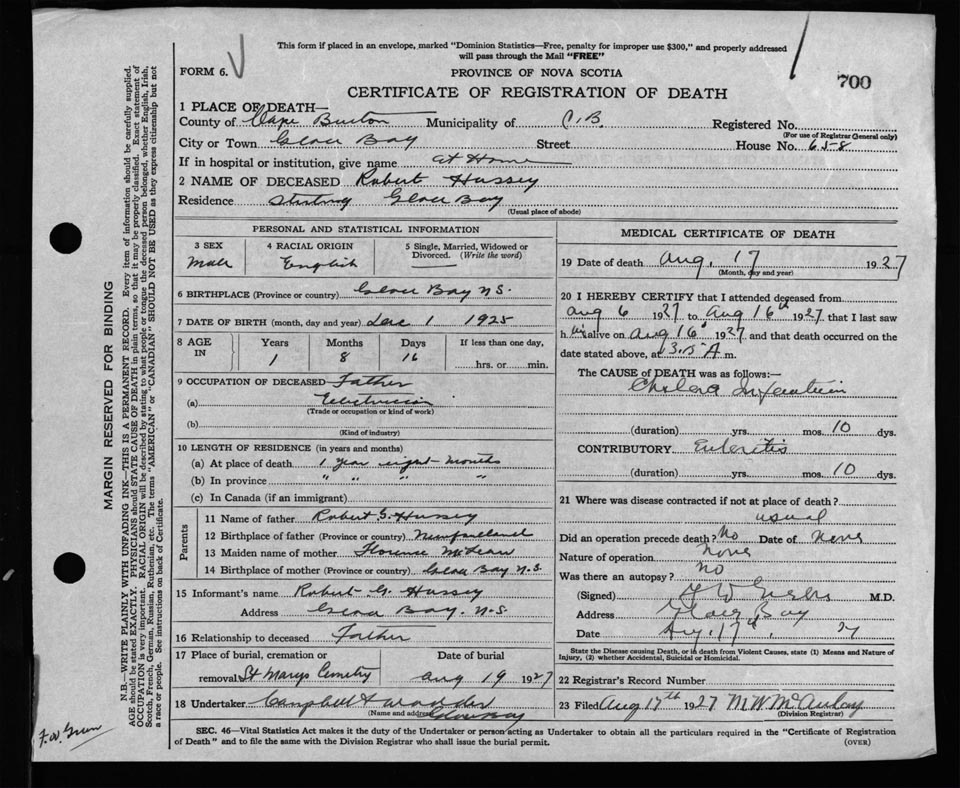 This form if placed in an envelope, marked "Dominion Statistics—Free, penalty for improper use $300," and properly addressed
will pass through the Mail "FREE"
FORM 6.
PROVINCE OF NOVA SCOTIA
700
CERTIFICATE OF REGISTRATION OF DEATH
1 PLACE OF DEATH—
County of Cape Breton Municipality of C.B. Registered No.
(For use of Registrar General only)
City or Town Glace Bay Street House No. 658
If in hospital or institution, give name at Home
2 NAME OF DECEASED Robert Hussey
Residence Sterling Glace Bay
(Usual place of abode)
PERSONAL AND STATISTICAL INFORMATION
3 SEX 4 RACIAL ORIGIN 5 Single, Married, Widowed or Divorced. (Write the word)
Male English —
6 BIRTHPLACE (Province or country) Glace Bay N.S.
7 DATE OF BIRTH (month, day and year) Dec 1 1925
8 AGE IN Years Months Days If less than one day,
1 8 16 hrs. or min.
9 OCCUPATION OF DECEASED Father
(a) Electrician
(Trade or occupation or kind of work)
(b)
(Kind of industry)
10 LENGTH OF RESIDENCE (in years and months)
(a) At place of death 1 year eight months
(b) In province " " " "
(c) In Canada (if an immigrant)
Parents
11 Name of father Robert G. Hussey
12 Birthplace of father (Province or country) Newfoundland
13 Maiden name of mother Florence McLean
14 Birthplace of mother (Province or country) Glace Bay N.S
15 Informant's name Robert G. Hussey
Address Glace Bay. N.S
16 Relationship to deceased Father
17 Place of burial, cremation or Date of burial
removal St Marys Cemetry Aug 19 1927
18 Undertaker Campbell &
(Name and address) Glace Bay
MEDICAL CERTIFICATE OF DEATH
19 Date of death Aug, 17 1927
(Month, day and year)
20 I HEREBY CERTIFY that I attended deceased from
Aug 6 1927 to Aug 16th 1927 that I last saw
h im alive on Aug 16 1927 and that death occurred on the
date stated above, at 3.15 A m.
The CAUSE OF DEATH was as follows:—
Cholera Infantum
(duration) yrs. mos. 10 dys.
CONTRIBUTORY Enteritis
(duration) yrs. mos. 10 dys.
21 Where was disease contracted if not at place of death?
usual
Did an operation precede death? No Date of None
Nature of operation None
Was there an autopsy? No
(Signed) M.D.
Address Glace Bay
Date Aug. 17th, 27
State the Disease causing Death, or in death from Violent Causes, state (1) Means and Nature of
Injury, (2) whether Accidental, Suicidal or Homicidal.
22 Registrar's Record Number
23 Filed Aug 17th 1927 M.W. McAulay
(Division Registrar)
SEC. 46—Vital Statistics Act makes it the duty of the Undertaker or person acting as Undertaker to obtain all the particulars required in the "Certificate of Registration
of Death" and to file the same with the Division Registrar who shall issue the burial permit.
(OVER)
MARGIN RESERVED FOR BINDING
N.B.—WRITE PLAINLY WITH UNFADING INK—THIS IS A PERMANENT RECORD. Every item of information should be carefully supplied.
AGE should be stated EXACTLY. PHYSICIANS should STATE CAUSE OF DEATH in plain terms, so that it may be properly classified. Exact statement of
OCCUPATION is very important. RACIAL ORIGIN will be described by stating to what people or tongue the deceased person belonged, whether English, Irish,
Scotch, French, German, Russian, Ruthenian, etc. The terms "AMERICAN" or "CANADIAN" SHOULD NOT BE USED as they express citizenship but not
a race or people. See instructions on back of Certificate.